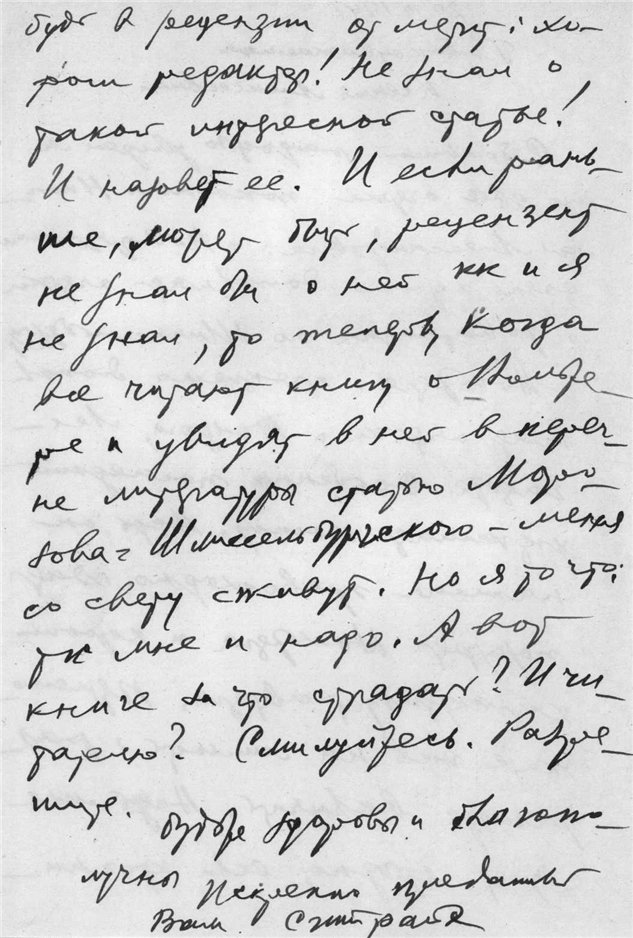 будт в рецензии отметит: хо-
рош редактор! Не знал о
такой интересной статье!
И назовет ее. И если рань-
ше, может быть, рецензент
не знал бы о ней кк и я
не знал, то теперь, когда
все читают книгу о
ре и увидят в ней в переч-
не литературы статью Моро-
зова-Шлиссельбургского - меня
со свету сживут. Но я то что:
тк мне и надо. А вот
книге за что страдать? И чи-
тателю? Смилуйтесь. Разре-
шите. Будьте здоровы и благопо-
лучны Искренно преданный
Вам